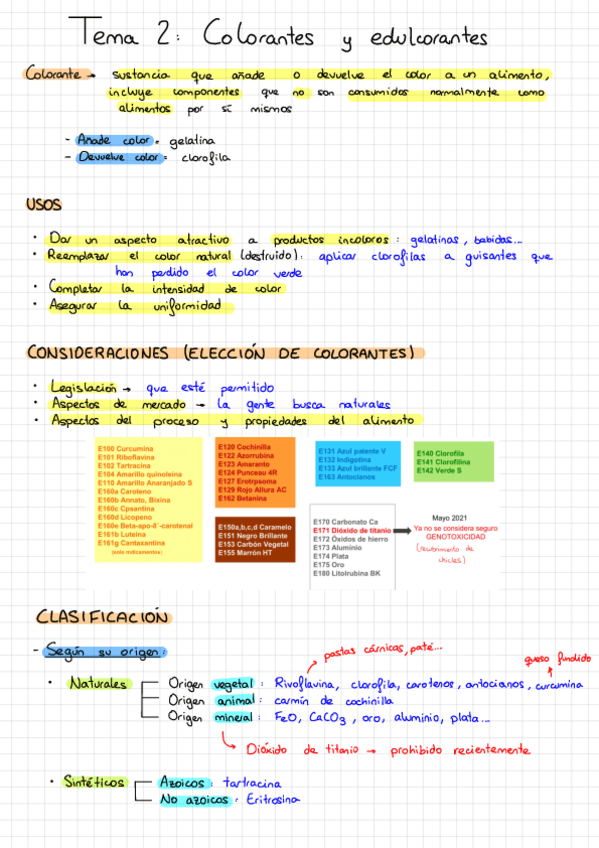 Tema 2: Colorantes y edulcorantes
Colorante → sustancia que añade o devuelve el color a un alimento,
incluye componentes que no son consumidos normalmente como
alimentos por sí mismos
- Añade color = gelatina
- Devuelve color = clorofila
USOS
• Dar un aspecto atractivo a productos incoloros: gelatinas, bebidas...
• Reemplazar el color natural (destruido): aplicar clorofilas a guisantes que
han perdido el color verde
• Completar la intensidad de color
• Asegurar la uniformidad
CONSIDERACIONES (ELECCIÓN DE COLORANTES)
• Legislación → que esté permitido
• Aspectos de mercado → la gente busca naturales
• Aspectos del proceso y propiedades del alimento
E100 Curcumina
E101 Riboflavina
E102 Tartracina
E104 Amarillo quinoleína
E110 Amarillo Anaranjado S
E160a Caroteno
E160b Annato, Bixina
E160c Cpsantina
E160d Licopeno
E160e Beta-apo-8´-carotenal
E161b Luteina
E161g Cantaxantina
(solo medicamentos)
E120 Cochinilla
E122 Azorrubina
E123 Amaranto
E124 Punceau 4R
E127 Erotrpsoma
E129 Rojo Allura AC
E162 Betanina
E150a,b,c,d Caramelo
E151 Negro Brillante
E153 Carbón Vegetal
E155 Marrón HT
E131 Azul patente V
E132 Indigotina
E133 Azul brillente FCF
E163 Antocianos
E140 Clorofila
E141 Clorofilina
E142 Verde S
E170 Carbonato Ca
E171 Dióxido de titanio
E172 Óxidos de hierro
E173 Aluminio
E174 Plata
E175 Oro
E180 Litolrubina BK
Mayo 2021
Ya no se considera seguro
GENOTOXICIDAD
(recubrimiento de
chicles)
CLASIFICACIÓN
- Según su origen:
pastas cárnicas, paté...
queso fundido
• Naturales
Origen vegetal: Rivoflavina, clorofila, carotenos, antocianos, curcumina
Origen animal: carmín de cochinilla
Origen mineral: FeO, CaCO3, oro, aluminio, plata...
Dióxido de titanio → prohibido recientemente
• Sintéticos
Azoicos: tartracina
No azoicos: Eritrosina